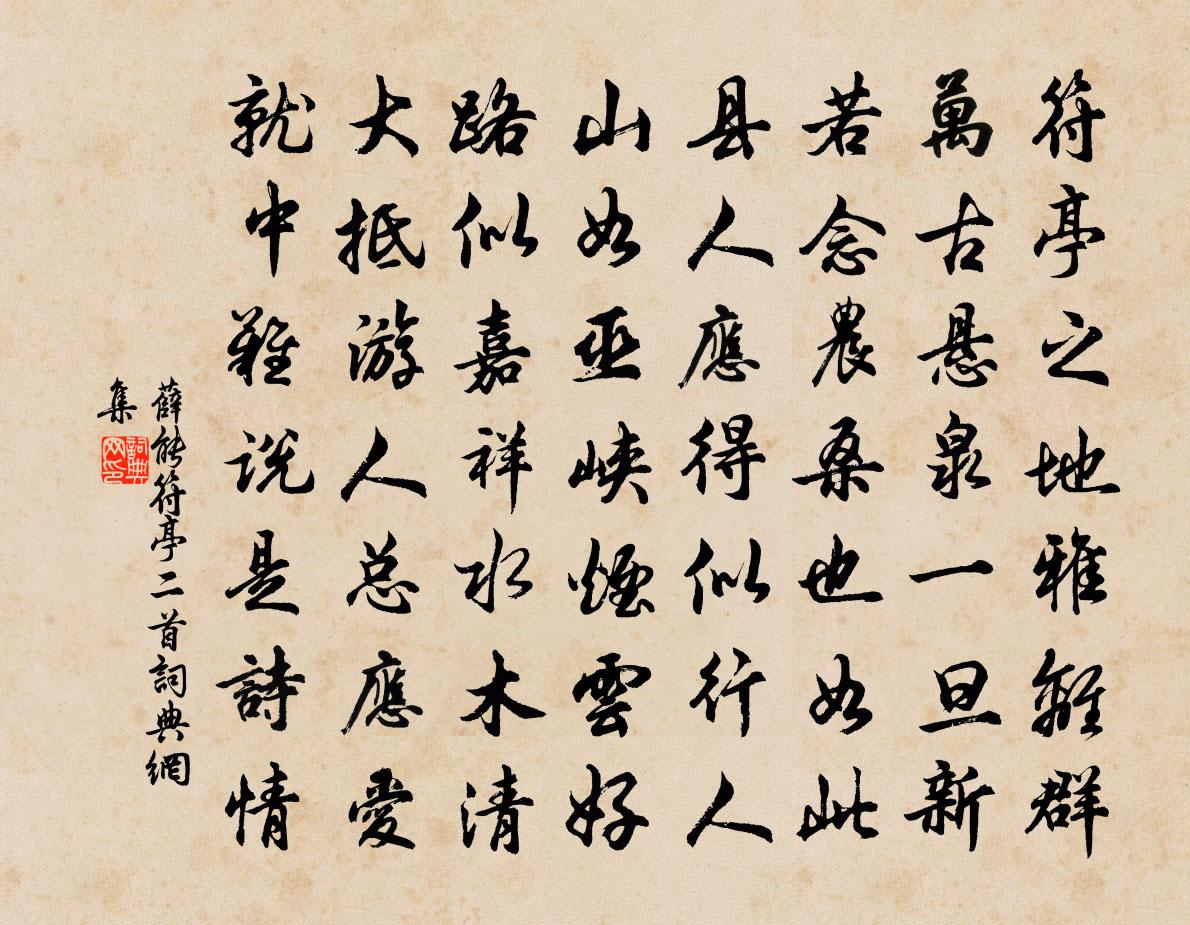 符亭之地雅離群
萬古悬泉一旦新
若念農桑也如此
县人應得似行人
山如巫峡煙雲好
路似嘉祥水木清
大抵游人总應愛
就中難说是詩情
薛能符亭二首詞典網
集
詞典网印